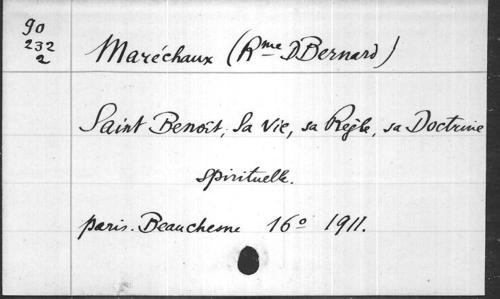 90
232
2
Maréchaux (Rme D Bernard)
Saint Benoît, Sa Vie, sa Règle, sa Doctrine
spirituelle.
paris. Beauchesne 16º 1911.